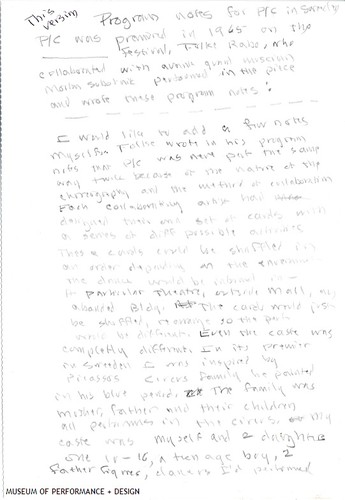 This version
Program notes for P/C in Sweden
P/C was premired in 1965 on the
festival, Folke Rabe, who
collaborated with avant gard musician
Morton Subotnik performed in the piece
and wrote these program notes:
I would like to add a few notes
myself. Folke wrote in his program
notes that P/C was never perf the same
way twice because of the nature of the
choreography and the method of collaboration
Each collaborating artist had
designed their own set of cards with
a series of diff possible activities
These cards could be shuffled in
an order depending on the
the dance would be
particular Theatre, outside Mall, an
abandoned Bldg. The cards would just
be shuffled, so the
would be different. Even the caste was
completly different. In its premier
in Sweden I was inspired by
Picassos Circus family he painted
in his blue period. The family was
mother, father and their children
all performers in the circus. My
caste was myself and 2 daughters
one 10-16, a teen age boy, 2
father figures, dancers I'd performed
MUSEUM OF PERFORMANCE + DESIGN